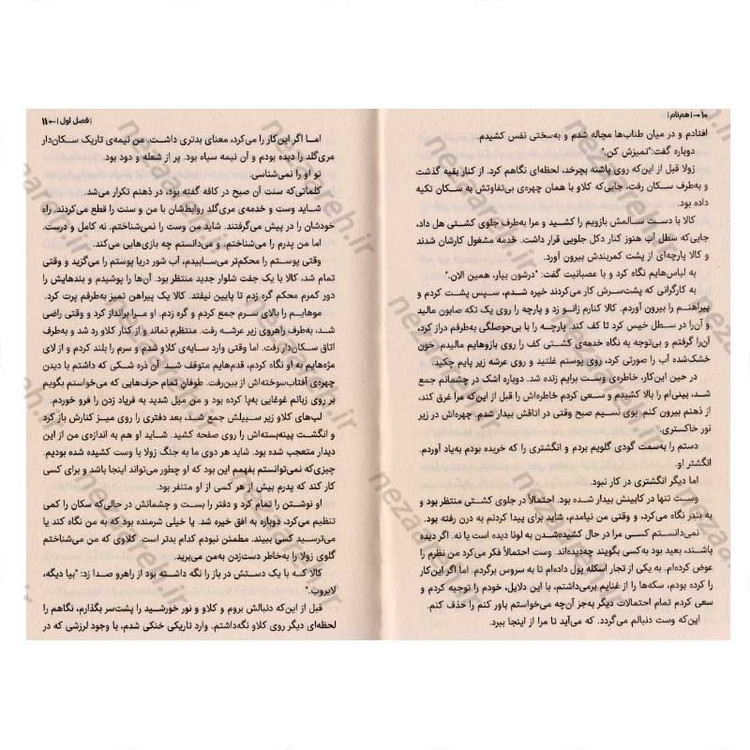 ۱۰ → | هم‌نام |
افتادم و در میان طناب‌ها مچاله شدم و به‌سختی نفس کشیدم.
دوباره گفت: "تمیزش کن."
زولا قبل از این‌که روی پاشنه بچرخد، لحظه‌ای نگاهم کرد. از کنار بقیه گذشت
و به‌طرف سکان رفت، جایی‌که کلاو با همان چهره‌ی بی‌تفاوتش به سکان تکیه
داده بود.
کالا با دست سالمش بازویم را کشید و مرا به‌طرف جلوی کشتی هل داد،
جایی‌که سطل آب هنوز کنار دکل جلویی قرار داشت. خدمه مشغول کارشان شدند
و کالا پارچه‌ای از پشت کمربندش بیرون آورد.
به لباس‌هایم نگاه کرد و با عصبانیت گفت: "درشون بیار، همین الان."
به کارگرانی که پشت‌سرش کار می‌کردند خیره شدم، سپس پشت کردم و
پیراهنم را بیرون آوردم. کالا کنارم زانو زد و پارچه را روی یک تکه صابون مالید
و آن‌را در سطل خیس کرد تا کف کند. پارچه را با بی‌حوصلگی به‌طرفم دراز کرد،
آن‌را گرفتم و بی‌توجه به نگاه خدمه‌ی کشتی کف را روی بازوهایم مالیدم. خون
خشک‌شده آب را صورتی کرد، روی پوستم غلتید و روی عرشه زیر پایم چکید.
در حین این‌کار، خاطره‌ی وست برایم زنده شد. دوباره اشک در چشمانم جمع
شد، بینی‌ام را بالا کشیدم و سعی کردم خاطره‌اش را قبل از این‌که مرا غرق کند،
از ذهنم بیرون کنم. بوی نسیم صبح وقتی در اتاقش بیدار شدم. چهره‌اش در زیر
نور خاکستری.
دستم را به‌سمت گودی گلویم بردم و انگشتری را که خریده بودم به‌یاد آوردم.
انگشتر او.
اما دیگر انگشتری در کار نبود.
وست تنها در کابینش بیدار شده بود. احتمالاً در جلوی کشتی منتظر بود و
به بندر نگاه می‌کرد، و وقتی من نیامدم، شاید برای پیدا کردنم به درن رفته بود.
نمی‌دانستم کسی مرا در حال کشیده‌شدن به لونا دیده است یا نه. اگر دیده
باشند، بعید بود به‌کسی بگویند چه‌دیده‌اند. وست احتمالاً فکر می‌کرد من نظرم را
عوض کرده‌ام. به یکی از تجار اسکله پول داده‌ام تا به سروس برگردم. اما اگر این‌کار
را کرده بودم، سکه‌ها را از غنایم برمی‌داشتم، با این دلایل، خودم را توجیه کردم و
سعی کردم تمام احتمالات دیگر به‌جز آن‌چه می‌خواستم باور کنم را حذف کنم.
این‌که وست دنبالم می‌گردد. که می‌آید تا مرا از اینجا ببرد.
| فصل اول | ← ۱۱
اما اگر این‌کار را می‌کرد، معنای بدتری داشت. من نیمه‌ی تاریک سکان‌دار
مری‌گلد را دیده بودم و آن نیمه سیاه بود. پر از شعله و دود بود.
تو او را نمی‌شناسی.
کلماتی‌که سنت آن صبح در کافه گفته بود، در ذهنم تکرار می‌شد.
شاید وست و خدمه‌ی مری‌گلد روابط‌شان با من و سنت را قطع می‌کردند. راه
خودشان را در پیش می‌گرفتند. شاید من وست را نمی‌شناختم. نه کامل و درست.
اما من پدرم را می‌شناختم. و می‌دانستم چه بازی‌هایی می‌کند.
وقتی پوستم را محکم‌تر می‌ساییدم، آب شور دریا پوستم را می‌گزید و وقتی
تمام شد، کالا با یک جفت شلوار جدید منتظر بود. آن‌ها را پوشیدم و بندهایش را
دور کمرم محکم گره زدم تا پایین نیفتد. کالا یک پیراهن تمیز به‌طرفم پرت کرد.
موهایم را بالای سرم جمع کردم و گره زدم. او مرا برانداز کرد و وقتی راضی
شد، به‌طرف راهروی زیر عرشه رفت. منتظرم نماند و از کنار کلاو رد شد و به‌طرف
اتاق سکان‌دار رفت. اما وقتی وارد سایه‌ی کلاو شدم و سرم را بلند کردم و از لای
مژه‌هایم به او نگاه کردم، قدم‌هایم متوقف شد. آن ذره شکی که داشتم با دیدن
چهره‌ی آفتاب‌سوخته‌اش از بین‌رفت. طوفان تمام حرف‌هایی که می‌خواستم بگویم
بر روی زبانم غوغایی به‌پا کرده بود و من میل شدید به فریاد زدن را فرو خوردم.
لب‌های کلاو زیر سبیلش جمع شد، بعد دفتری را روی میز کنارش باز کرد
و انگشت پینه‌بسته‌اش را روی صفحه کشید. شاید او هم به اندازه‌ی من از این
دیدار متعجب شده بود. شاید هر دوی ما به جنگ زولا با وست کشیده شده بودیم.
چیزی‌که نمی‌توانستم بفهمم این بود که او چطور می‌تواند اینجا باشد و برای کسی
کار کند که پدرم بیش از هر کسی از او متنفر بود.
او نوشتن را تمام کرد و دفتر را بست و چشمانش در حالی‌که سکان را کمی
تنظیم می‌کرد، دوباره به افق خیره شد. یا خیلی شرمنده بود که به من نگاه کند یا
می‌ترسید کسی ببیند. مطمئن نبودم کدام بدتر است. کلاوی که من می‌شناختم
گلوی زولا را به‌خاطر دست‌زدن به‌من می‌برید.
کالا که با یک دستش در باز را نگه داشته بود از راهرو صدا زد: "بیا دیگه،
لایروب."
قبل از این‌که دنبالش بروم و کلاو و نور خورشید را پشت‌سر بگذارم، نگاهم را
لحظه‌ای دیگر روی کلاو نگه‌داشتم. وارد تاریکی خنکی شدم، با وجود لرزشی که در
nezaareh.ir